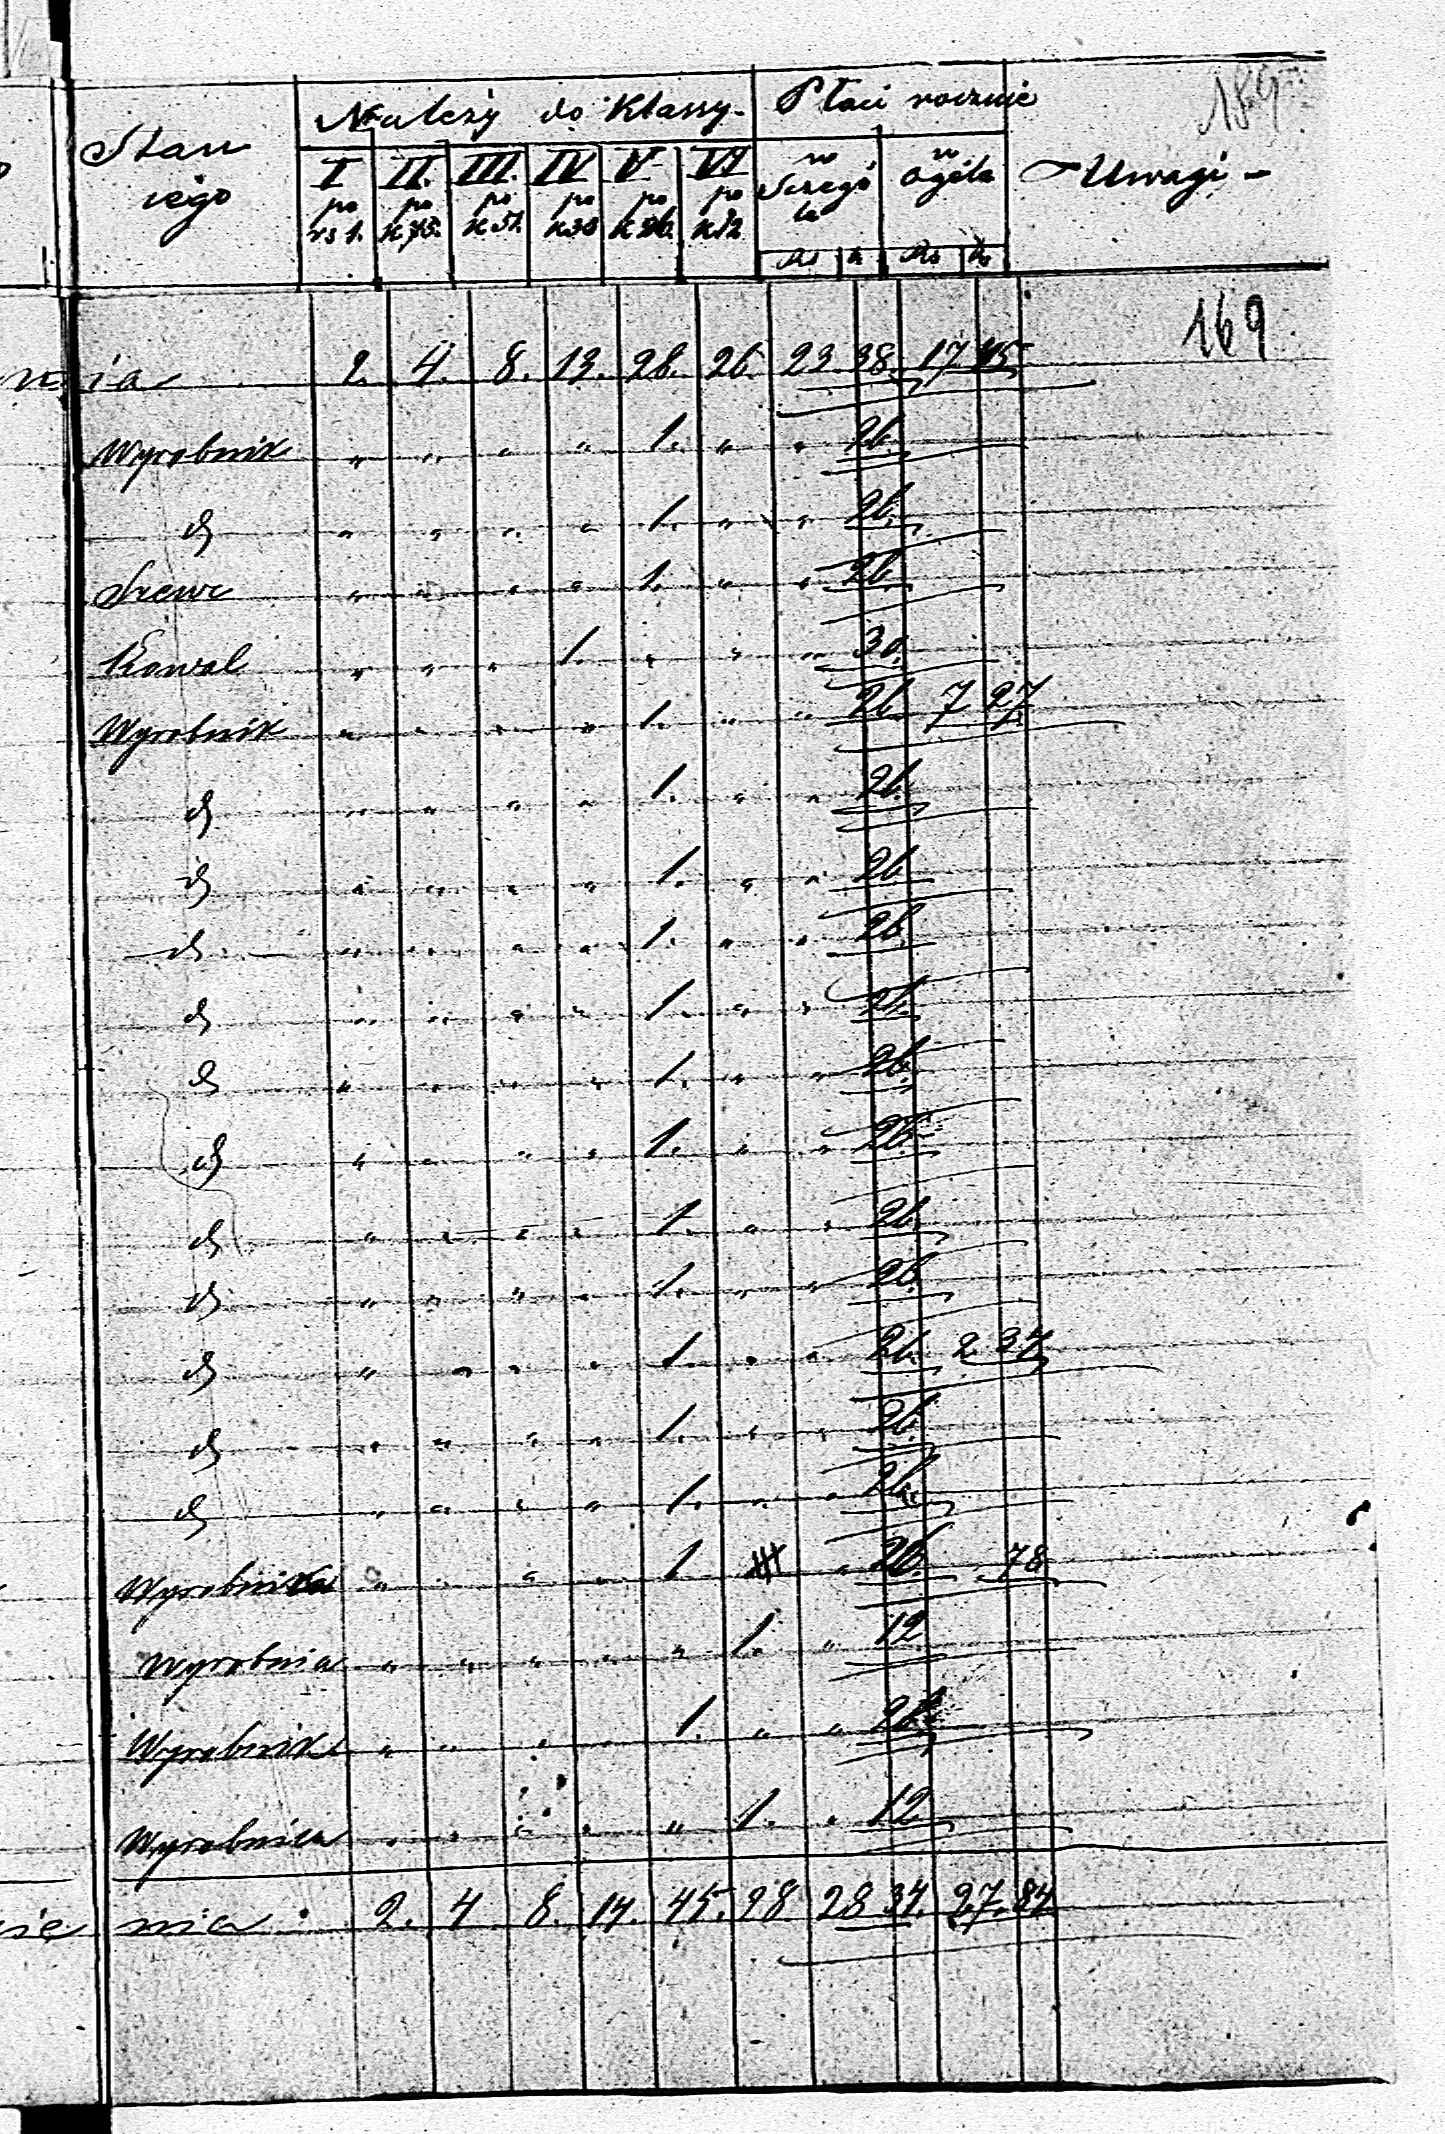 Stan
iego
Należy do Klassy.
Płaci rocznie
189
I po rs 1.
II. po k 75.
III. po k 51.
IV po k 30
V po k 26.
VI po k 12
w Szczegó
ła
w ogóle
Uwagi
Rs k Rs k
169
nia 2. 4. 8. 13. 28. 26. 23. 38. 17 45
Wyrobnik „ „ „ „ 1. „ „ 26.
d „ „ „ „ 1. „ „ 26.
Szewc „ „ „ „ 1. „ „ 26
Kowal „ „ „ 1. „ „ „ 30.
Wyrobnik „ „ „ „ 1. „ „ 26 7 27
d „ „ „ „ 1. „ „ 26.
d „ „ „ „ 1. „ „ 26
d „ „ „ „ 1. „ „ 26
d „ „ „ „ 1. „ „ 26.
d „ „ „ „ 1. „ „ 26.
d „ „ „ „ 1. „ „ 26
d „ „ „ „ 1. „ „ 26.
d „ „ „ „ 1. „ „ 26.
d „ „ „ „ 1. „ „ 26. 2 34
d „ „ „ „ 1. „ „ 26.
d „ „ „ „ 1. „ „ 26.
Wyrobnica „ „ „ „ 1. „ 26. 78
Wyrobnia „ „ „ „ „ 1. „ 12
Wyrobnik „ „ „ „ 1. „ „ 26
Wyrobnica „ „ „ „ „ 1. „ 12
sie nia 2. 4. 8. 14. 45. 28 28 34. 27. 84